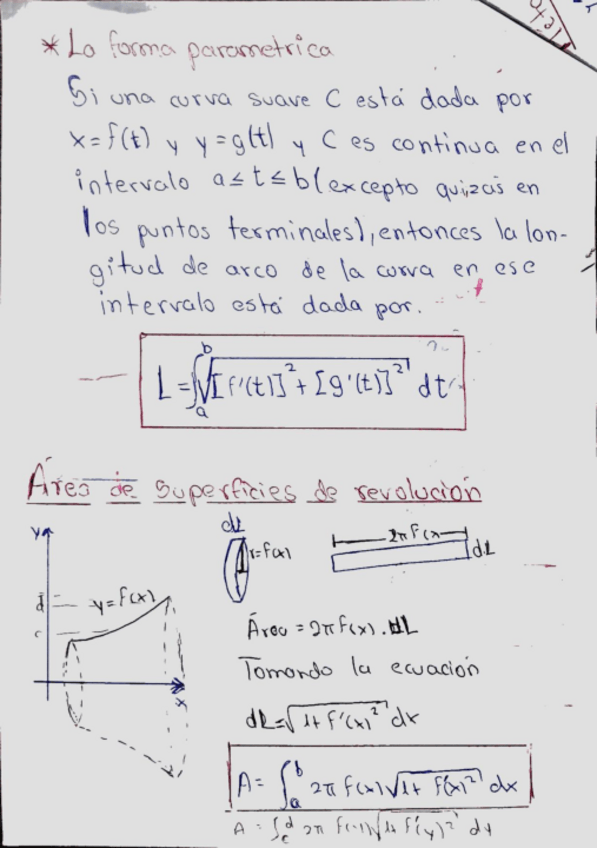 * La forma parametrica
Si una curva suave C está dada por
x=f(t) y y=g(t) y C es continua en el
intervalo a≤t≤b (excepto quizás en
los puntos terminales), entonces la lon-
gitud de arco de la curva en ese
intervalo está dada por.
L = ∫ₐᵇ √([f'(t)]² + [g'(t)]²) dt
Área de superficies de revolución
y
d
c
y=f(x)
x
dL
r=f(x)
2πf(x
dL
Área = 2πf(x).dL
Tomando la ecuación
dL=√(1+f'(x)²) dx
A= ∫ₐᵇ 2π f(x)√(1+ f'(x)²) dx